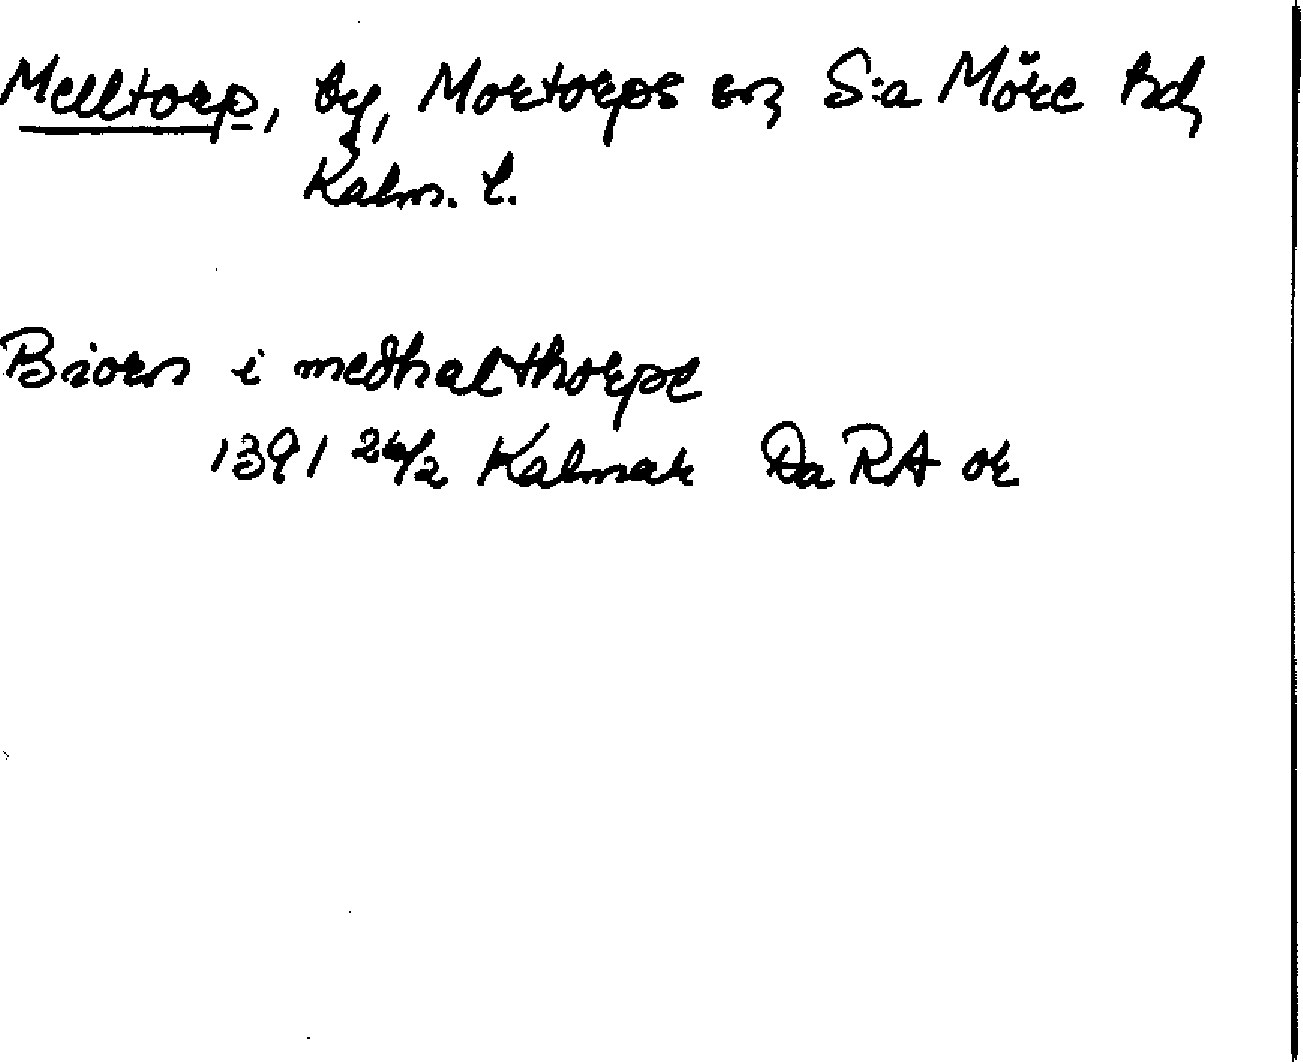 Melltorp, by, Mortorps sn, S:a Möre hd,
Kalm. l.
Biorn i medhalthorpe
1391 26/2 Kalmar Da RA or